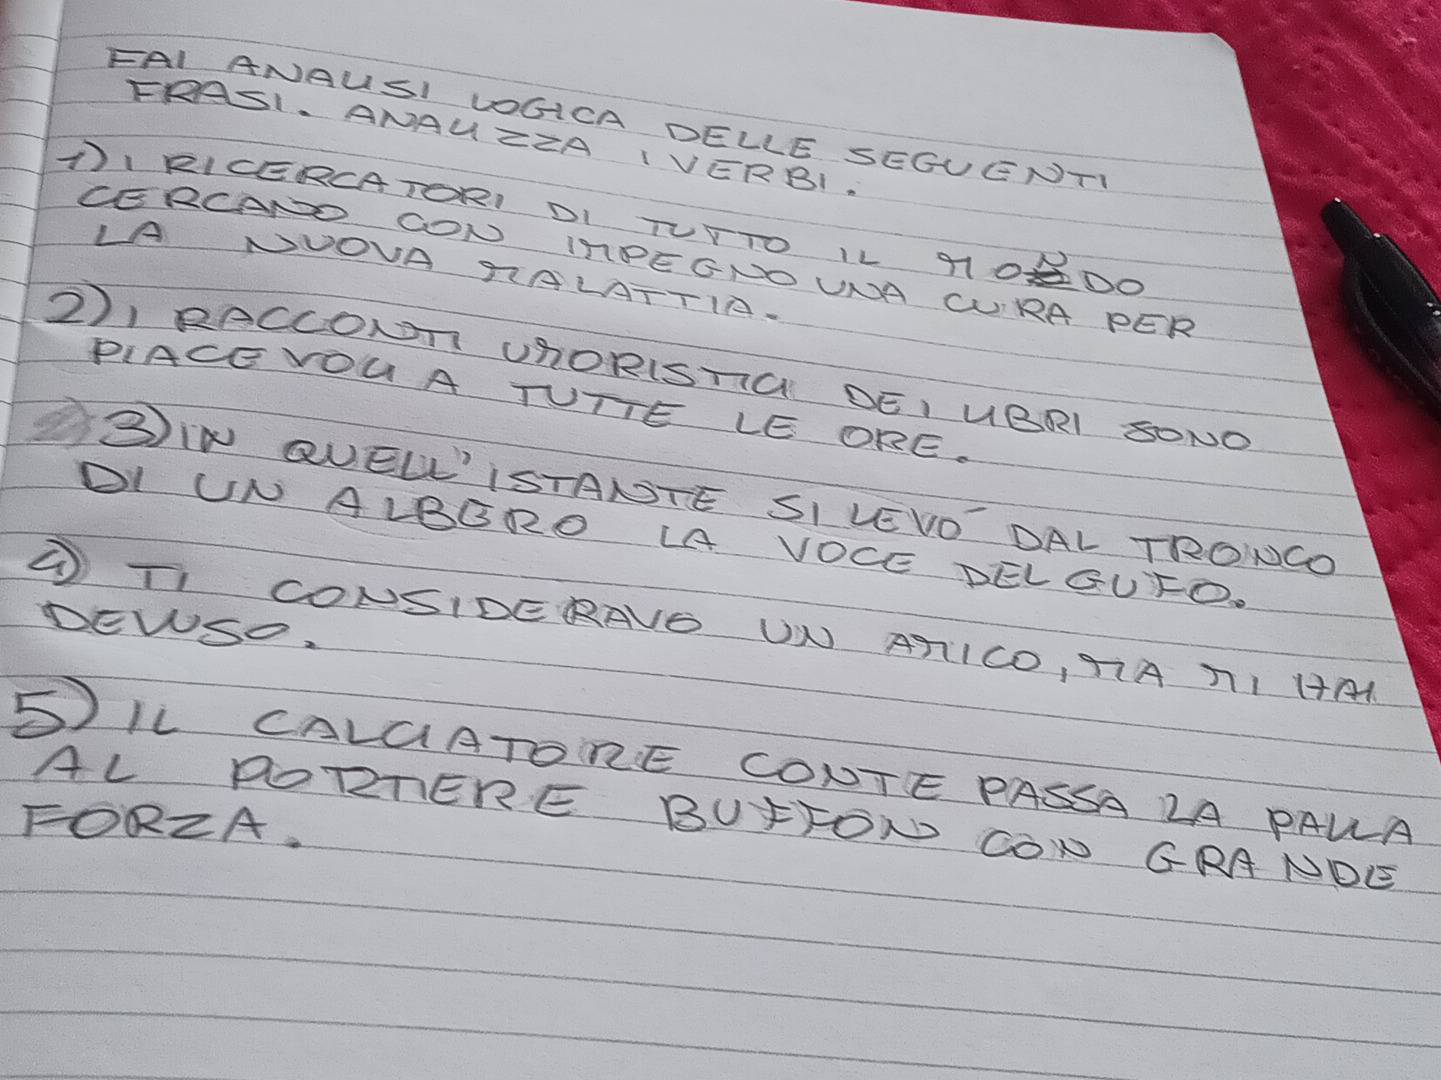 FAI ANALISI LOGICA DELLE SEGUENTI
FRASI. ANALIZZA I VERBI.
1) I RICERCATORI DI TUTTO IL MONDO
CERCANO CON IMPEGNO UNA CURA PER
LA NUOVA MALATTIA.
2) I RACCONTI UMORISTICI DEI LIBRI SONO
PIACEVOLI A TUTTE LE ORE.
3) IN QUELL'ISTANTE SI LEVÒ DAL TRONCO
DI UN ALBERO LA VOCE DEL GUFO.
4) TI CONSIDERAVO UN AMICO, MA MI HAI
DELUSO.
5) IL CALCIATORE CONTE PASSA LA PALLA
AL PORTIERE BUFFON CON GRANDE
FORZA.